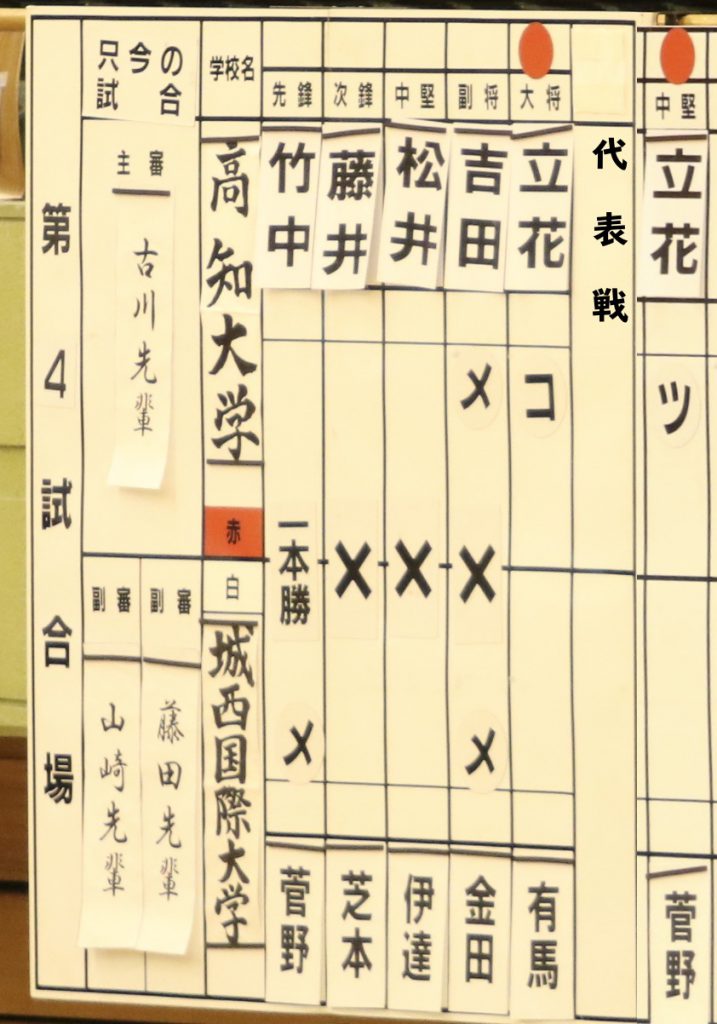 第4試合場
只今の
試合
主審
古川先輩
副審
山崎先輩
副審
藤田先輩
学校名
高知大学
赤
白
城西国際大学
先鋒
竹中
一本勝
メ
菅野
次鋒
藤井
×
芝本
中堅
松井
×
伊達
副将
吉田
メ
×
メ
金田
大将
立花
コ
有馬
代表戦
中堅
立花
ツ
菅野